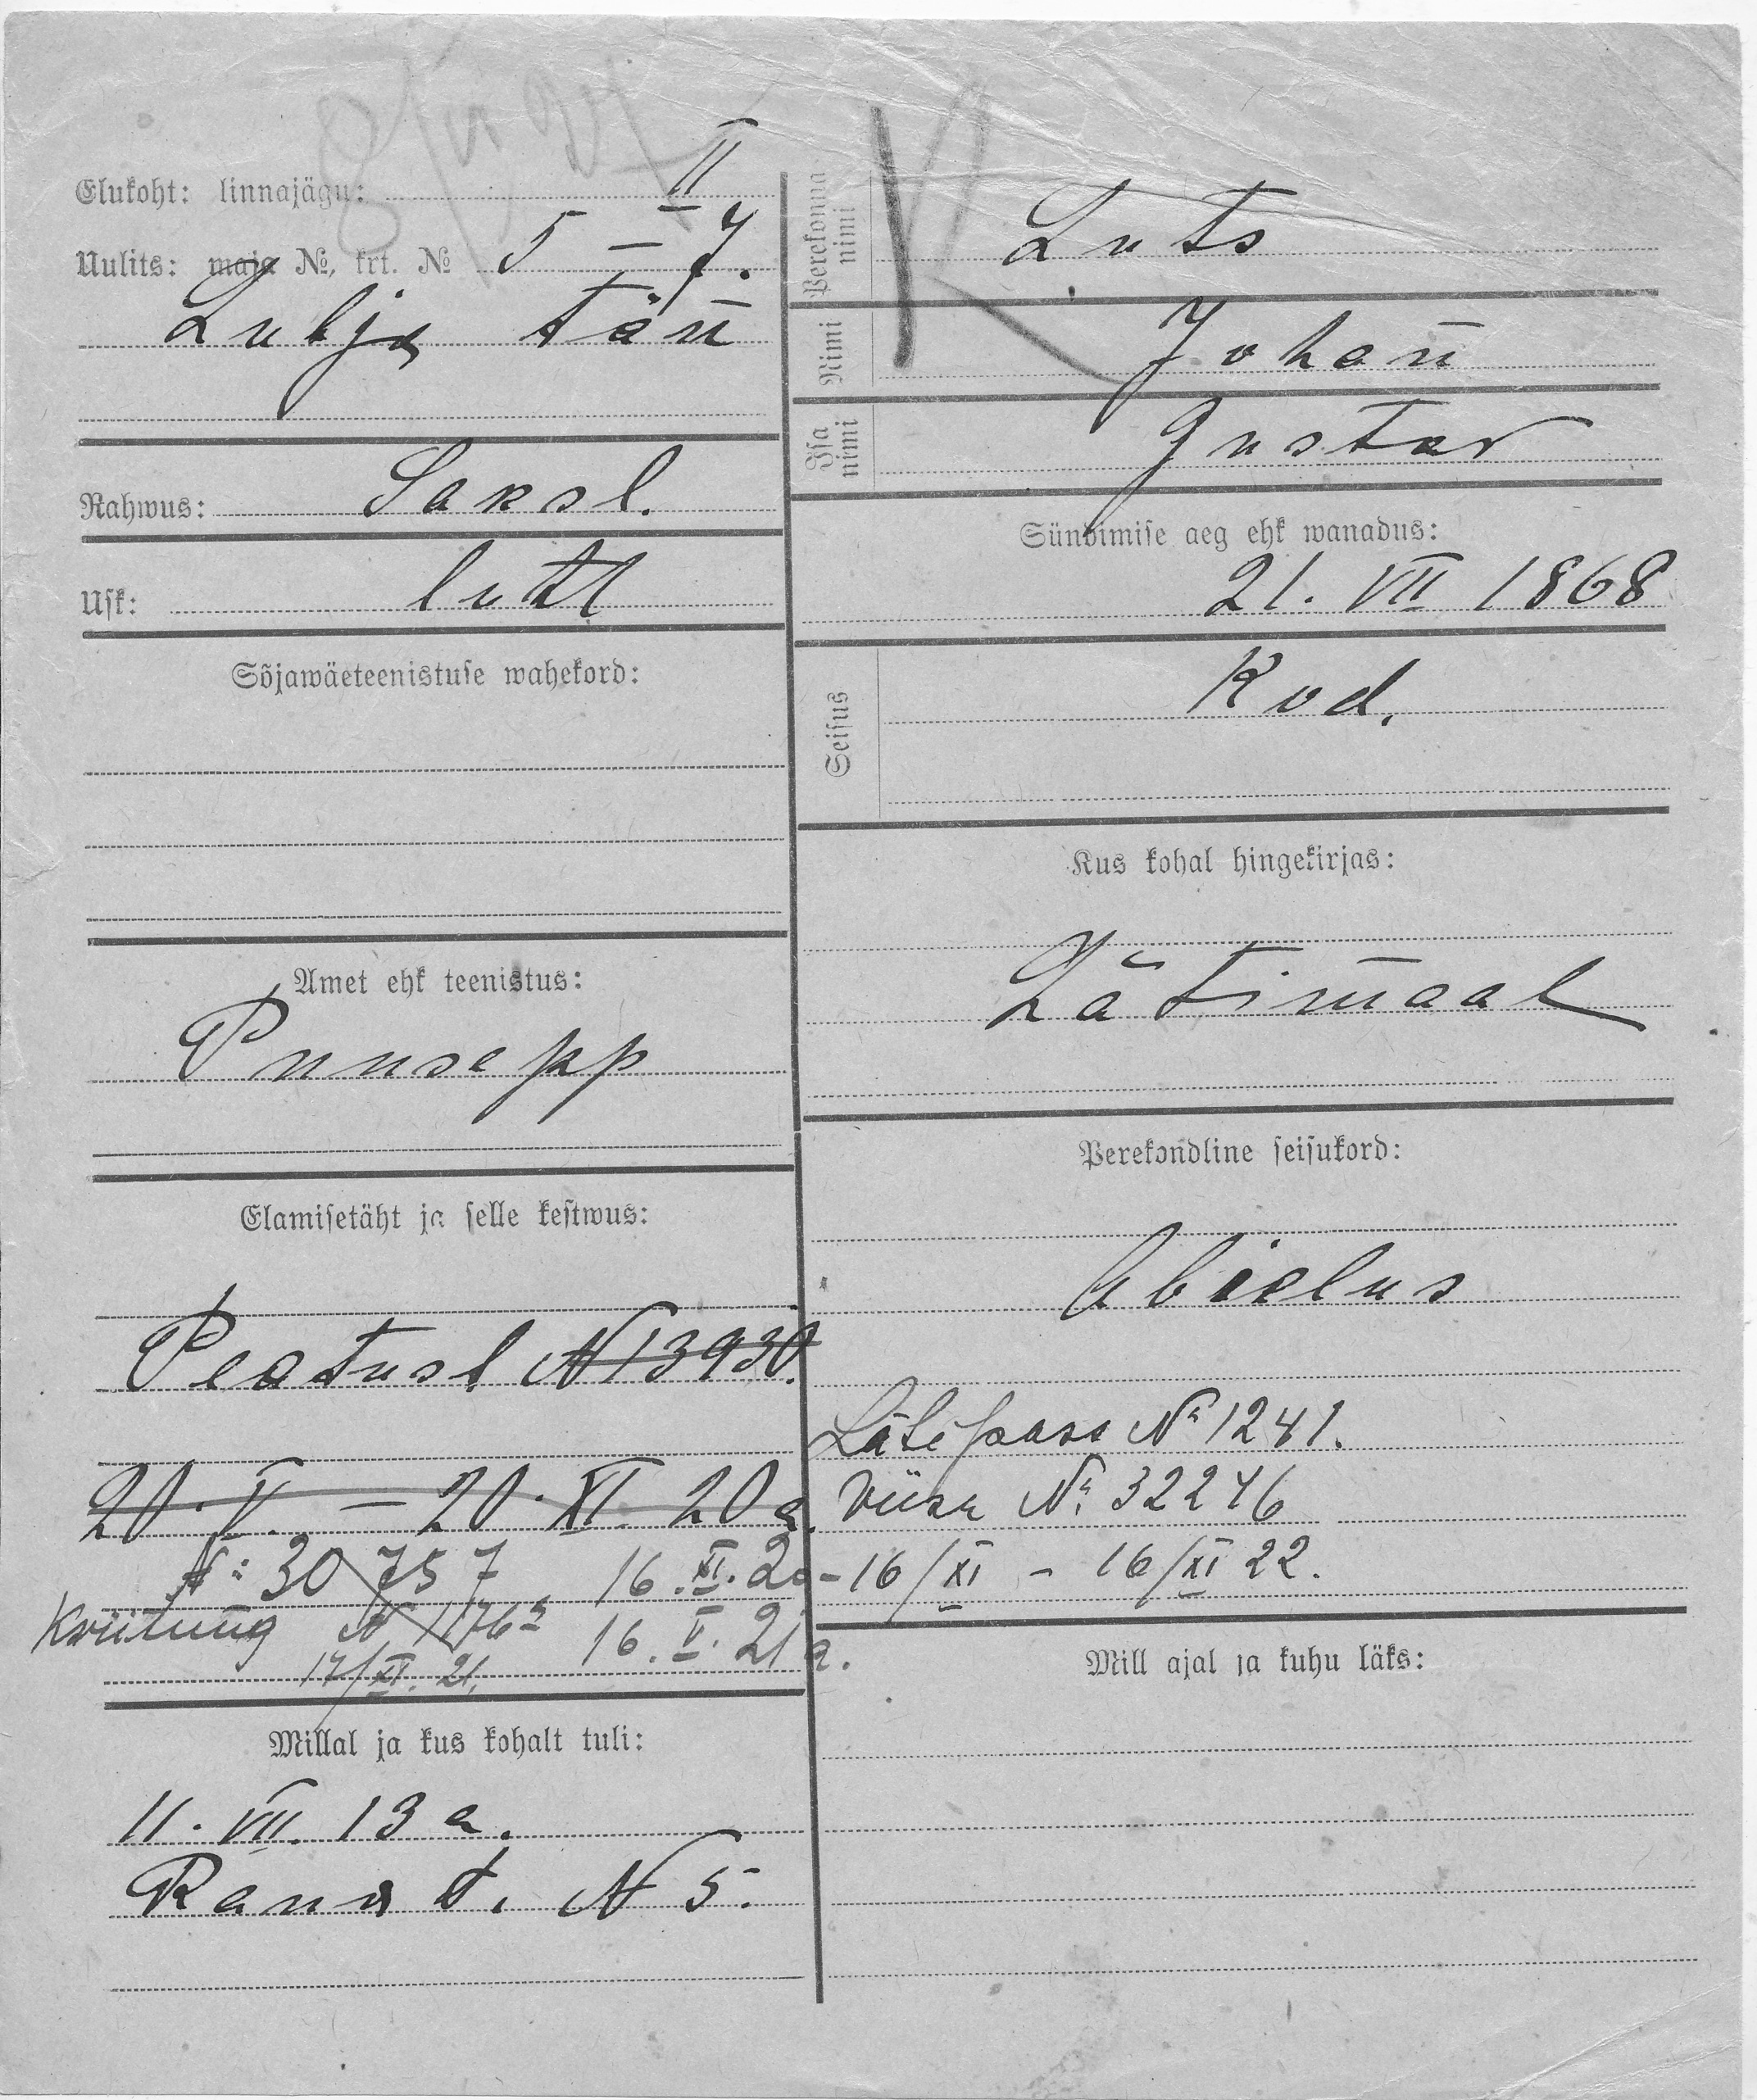 Elukoht: linnajägu: II
Uulits: maja №, krt. № 5 – 7.
Lubja tän̄
Rahwus: Saksl.
Usk: luttl
Sõjawäeteenistuse wahekord:
Amet ehk teenistus:
Puusepp
Elamisetäht ja selle kestwus:
Peatusl N 13930.
20. V. – 20. XI. 20 a.
№: 30757 16. XI. 20 –
16. V. 21 a.
17/XI. 21.
Millal ja kus kohalt tuli:
11. VII. 13 a.
Rana t. N 5.
Perekonna nimi Luts
Nimi Johan̄
Isa nimi Gustav
Sündimise aeg ehk wanadus:
21. VII 1868
Seisus Kod.
Kus kohal hingekirjas:
Lätim̄aal
Perekondline seisukord:
Abielus
Läti pass № 1241.
Viisa №: 32246
16/XI – 16/XI 22.
Mill ajal ja kuhu läks: